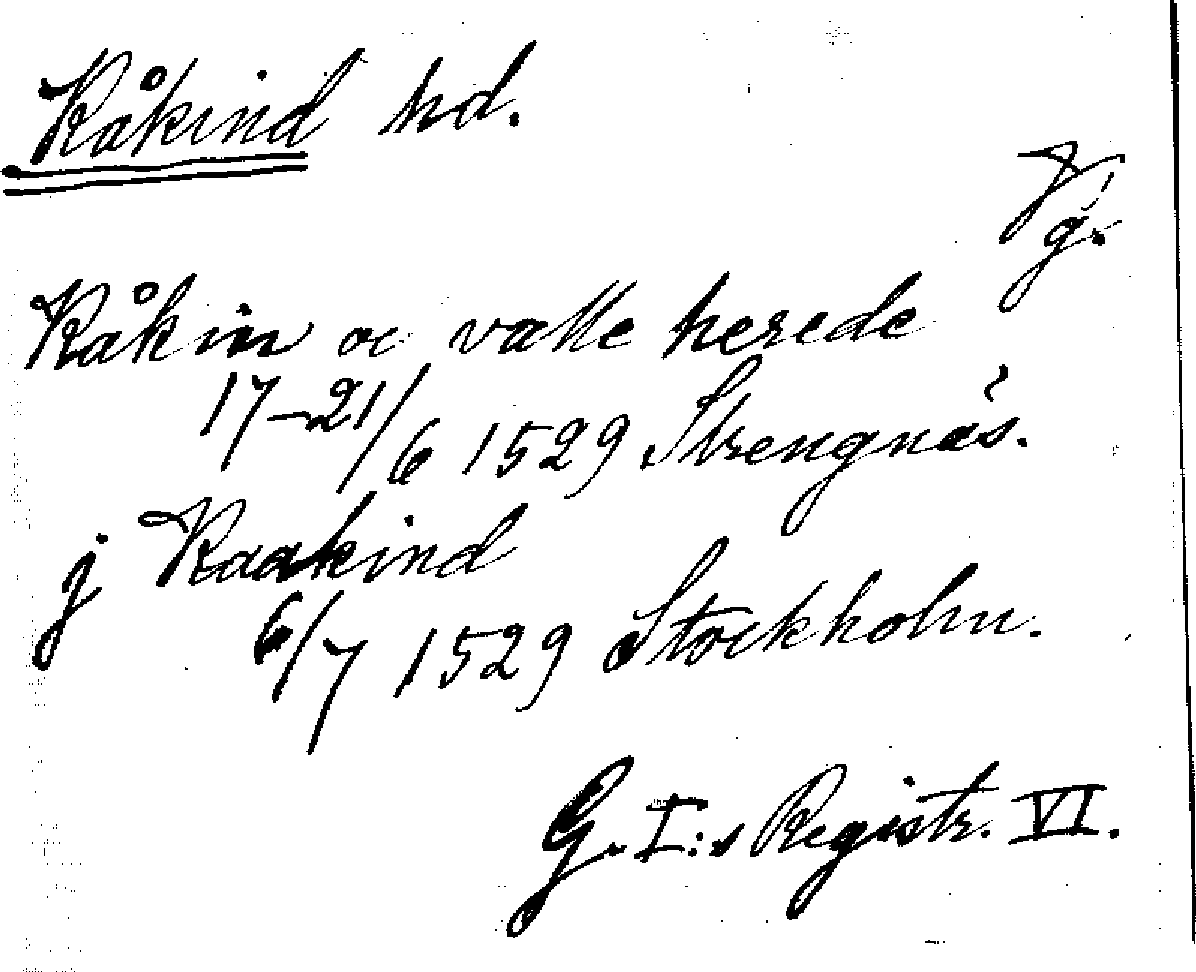 Kåkind hd.
Vg.
Kåkin oc valle herede
17-21/6 1529 Strengnäs.
j Kaakind
6/7 1529 Stockholm.
G. I:s Registr. VI.